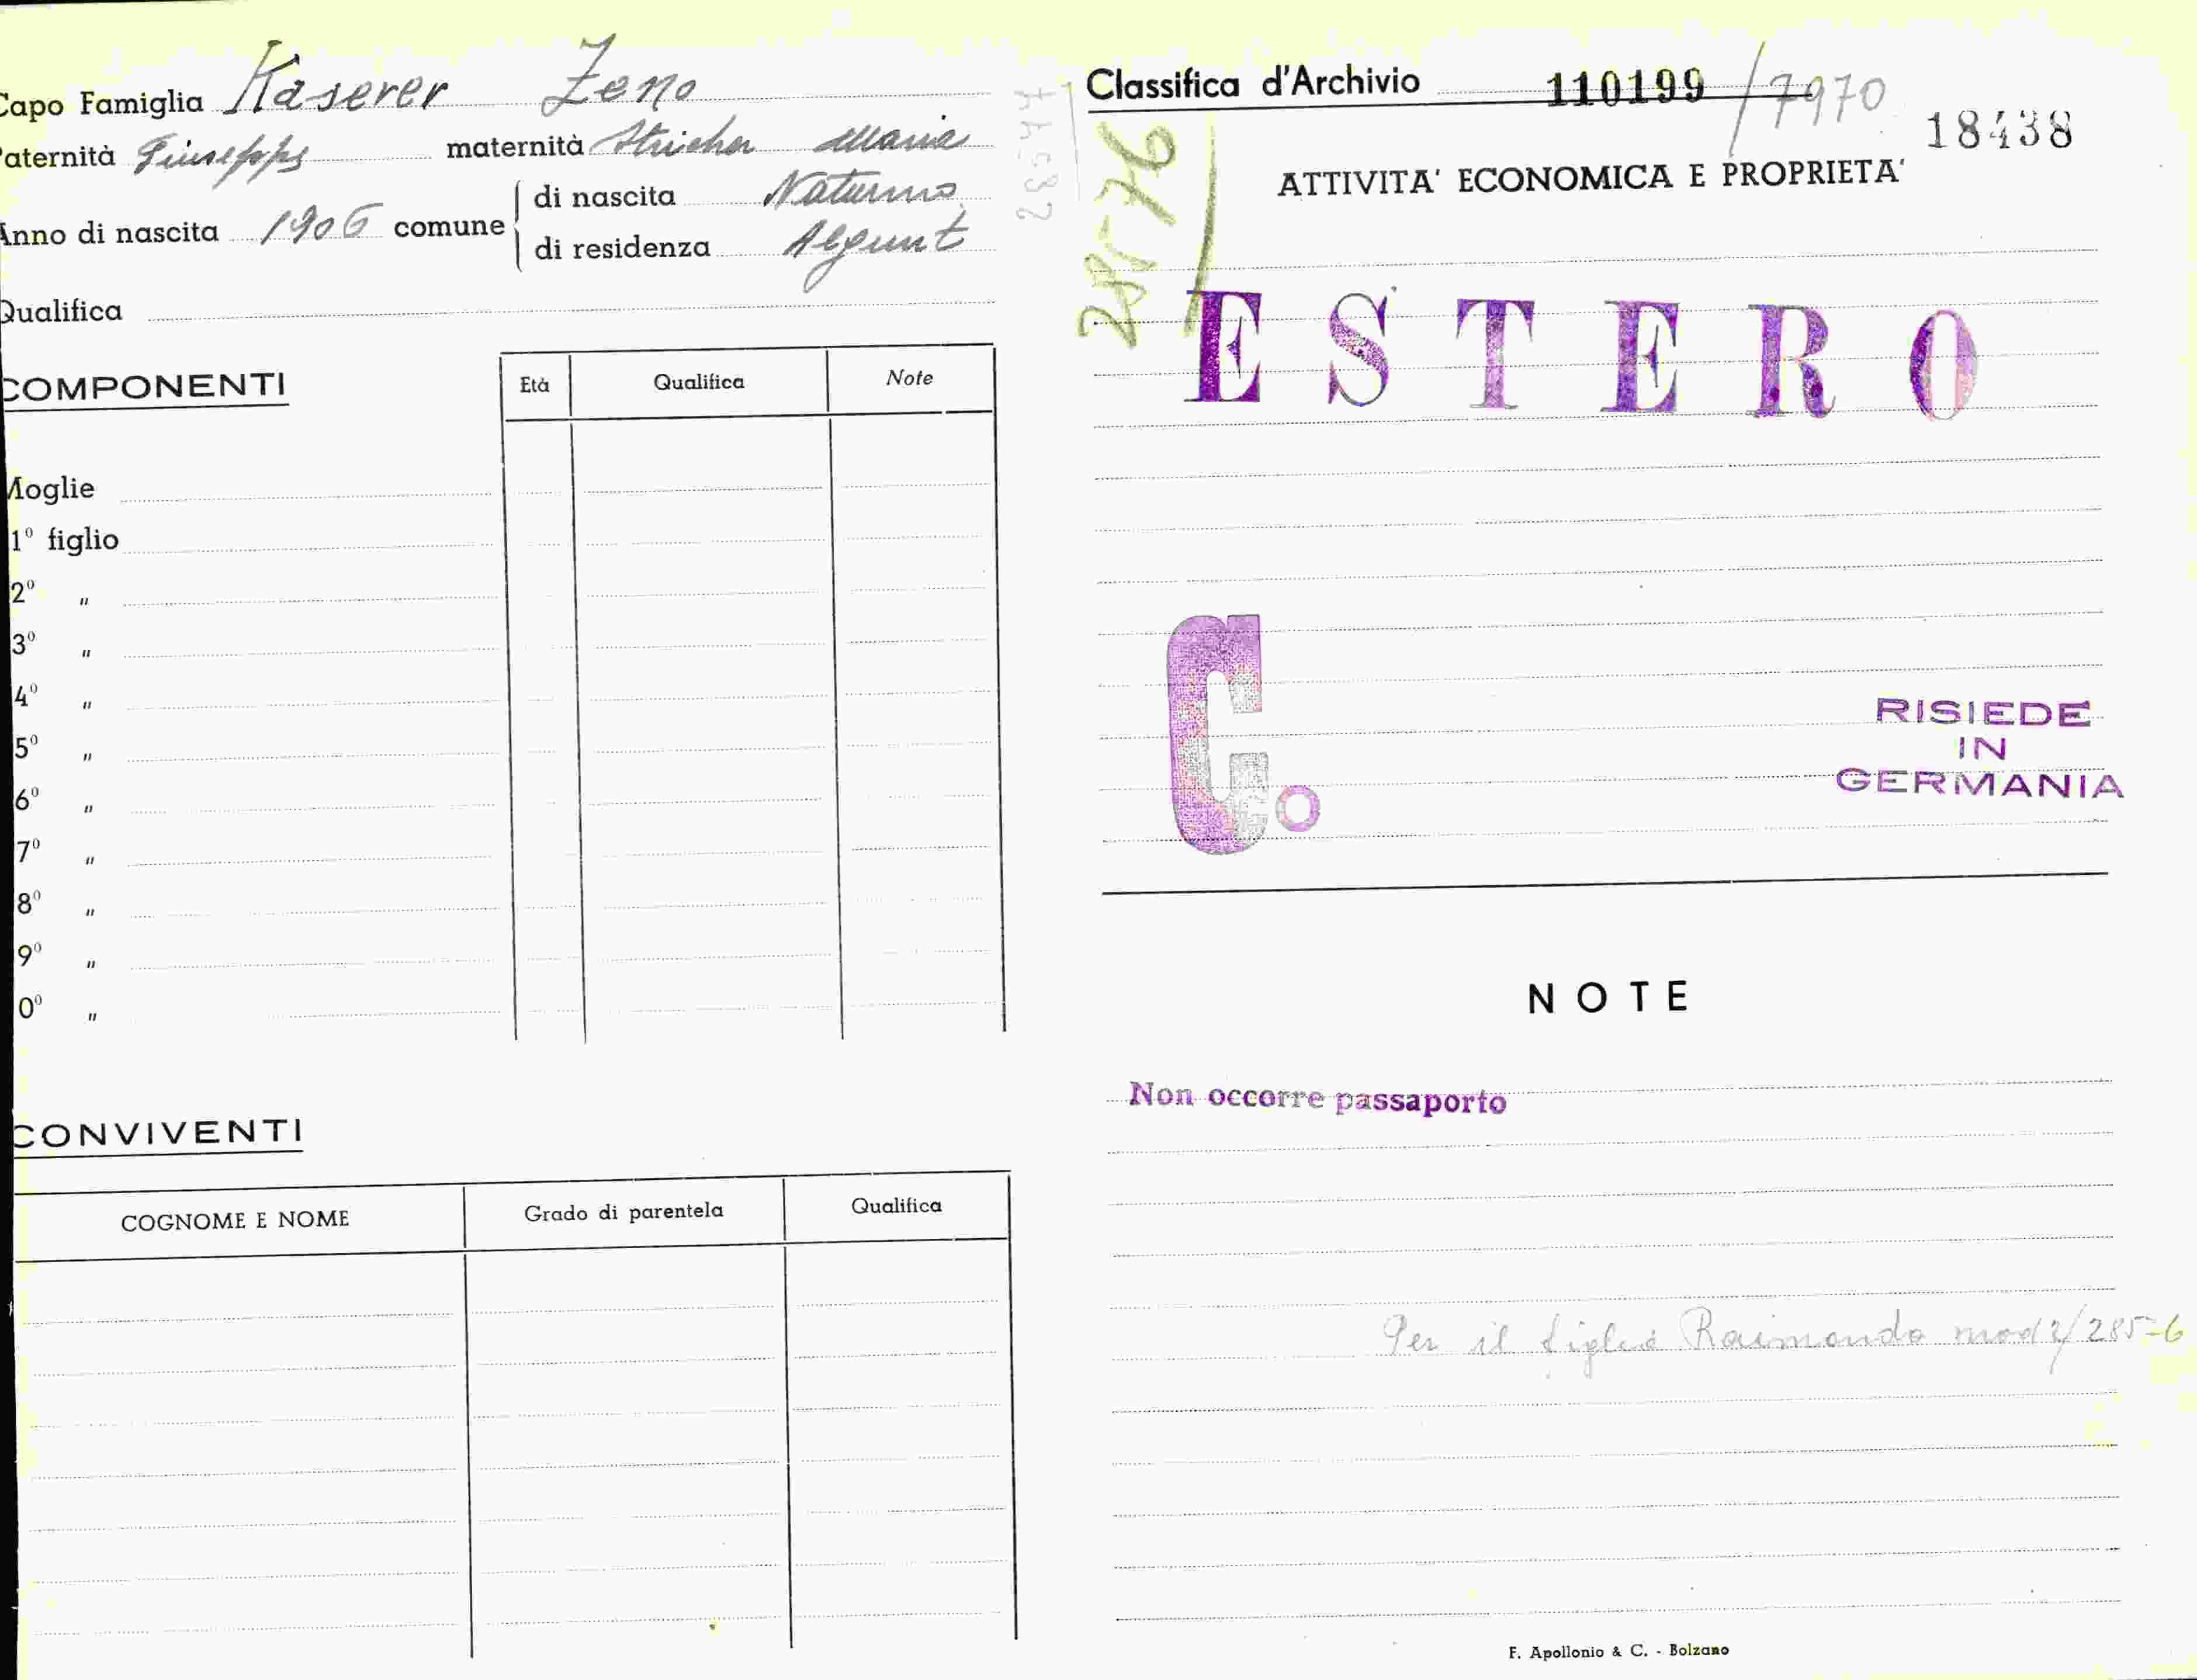 Capo Famiglia Kaserer Zeno
Paternità Giuseppe maternità Stricker Maria
Anno di nascita 1906 comune
di nascita Naturno
di residenza Algunt
Qualifica
COMPONENTI
Età Qualifica Note
Moglie
1º figlio
2º "
3º "
4º "
5º "
6º "
7º "
8º "
9º "
0º "
CONVIVENTI
COGNOME E NOME Grado di parentela Qualifica
Classifica d'Archivio 110199/7970
18438
ATTIVITA' ECONOMICA E PROPRIETA'
ESTERO
Co
RISIEDE
IN
GERMANIA
NOTE
Non occorre passaporto
Per il figlio Raimondo mod 2/285-6
F. Apollonio & C. - Bolzano